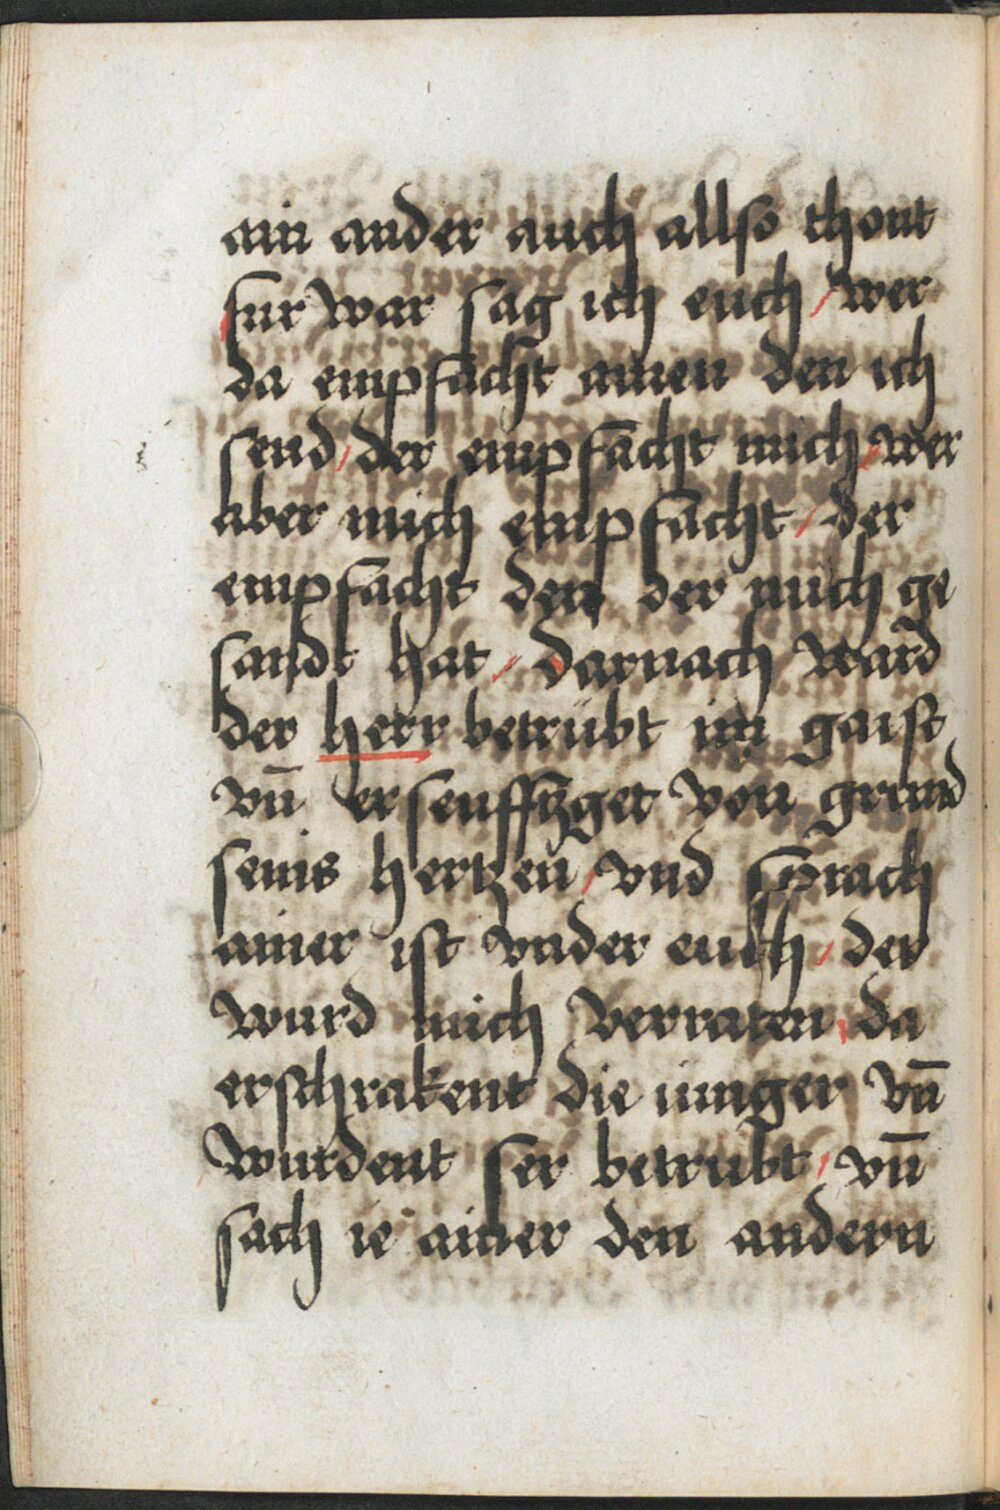 ain ander auch allso thont
fur war sag ich euch / wer
da empfacht ainen den ich
send / der empfacht mich / wer
aber mich empfacht / der
empfacht den der mich ge
sandt hat / darnach ward
der herr betrübt im gaist
vn̄ erseuffzget von grund
seins hertzen / vnd sprach
ainer ist vnder euch / der
wurd mich verraten / da
erschrakent die iunger vn̄
wurdent ser betrübt / vn̄
sach ie ainer den andern